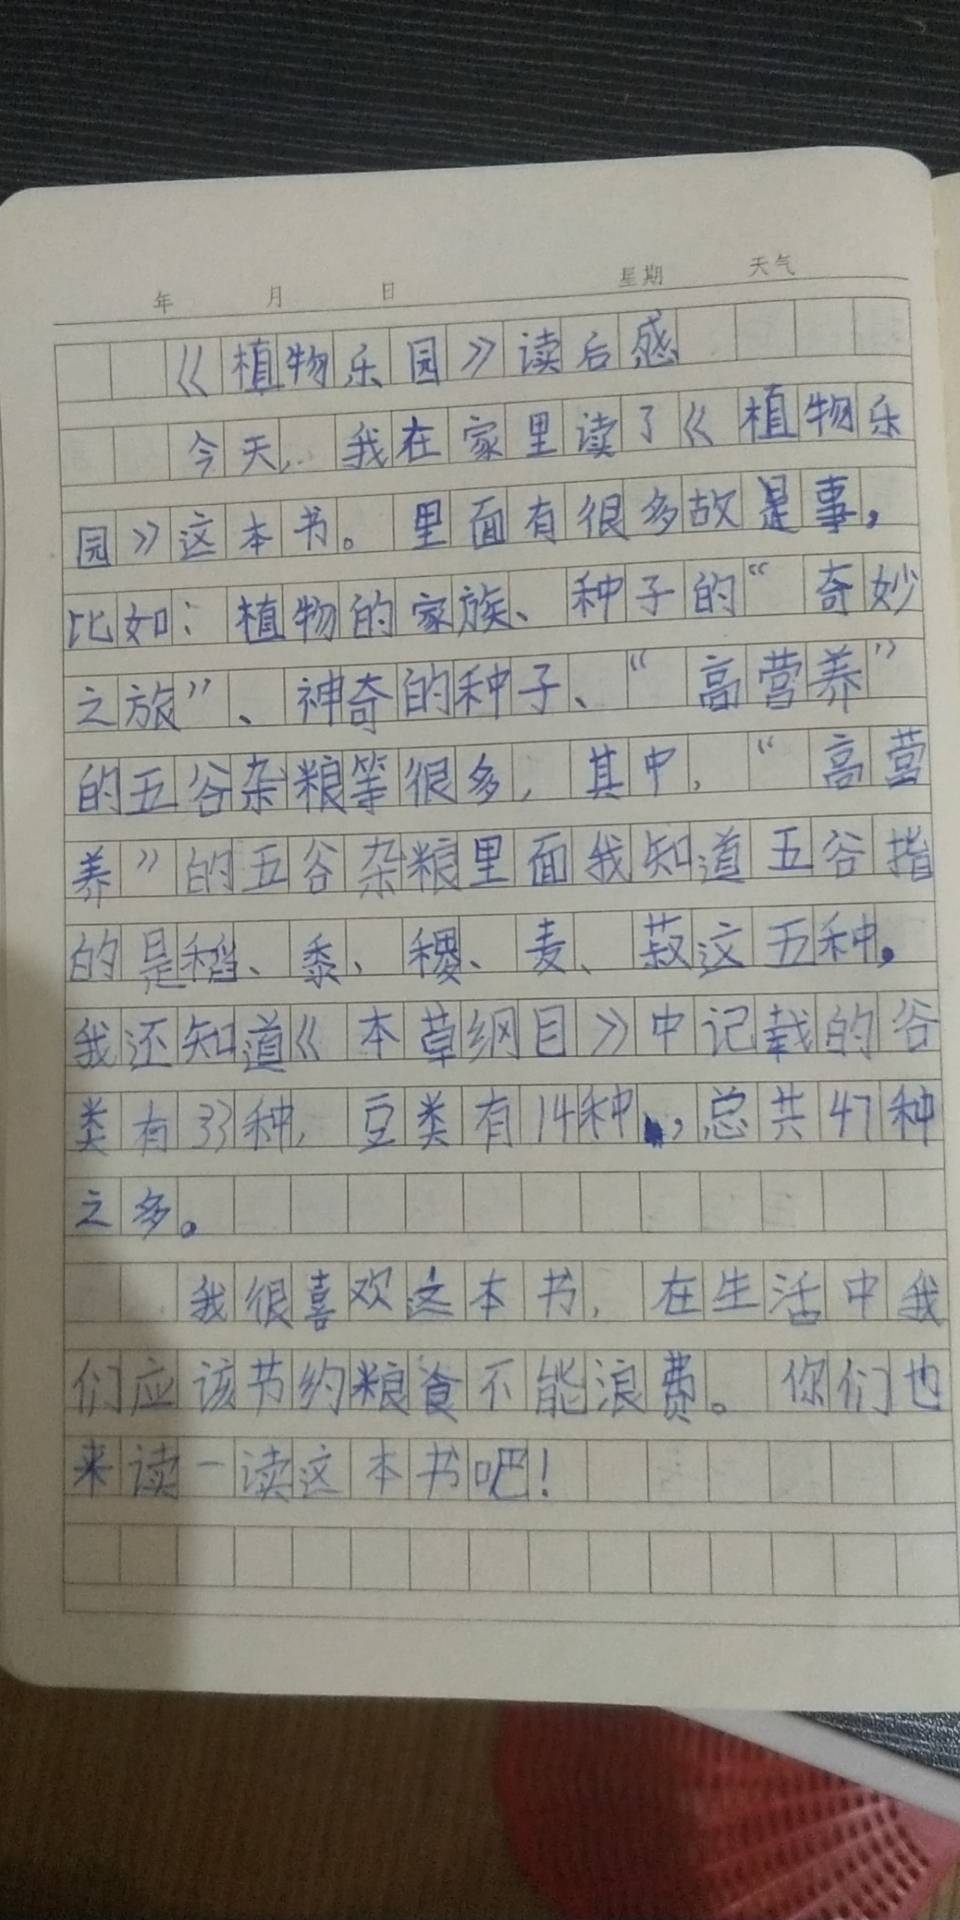 年 月 日 星期 天气
《植物乐园》读后感
今天，我在家里读了《植物乐
园》这本书。里面有很多故是事，
比如：植物的家族、种子的“奇妙
之旅”、神奇的种子、“高营养”
的五谷杂粮等很多，其中，“高营
养”的五谷杂粮里面我知道五谷指
的是稻、黍、稷、麦、菽这五种。
我还知道《本草纲目》中记载的谷
类有33种，豆类有14种，总共47种
之多。
我很喜欢这本书，在生活中我
们应该节约粮食不能浪费。你们也
来读一读这本书吧！